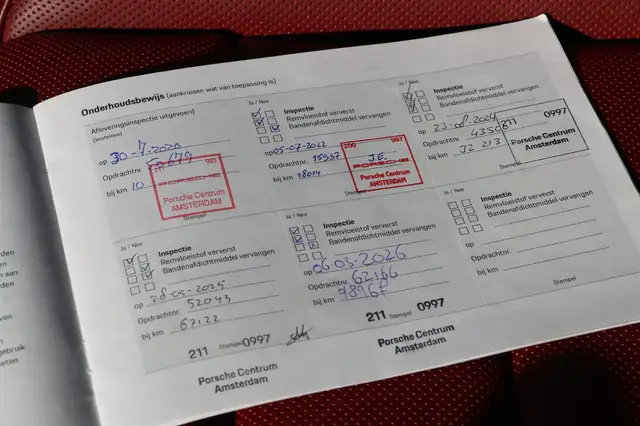 Onderhoudsbewijs (aankruisen wat van toepassing is)
Afleveringsinspectie uitgevoerd
(kosteloos)
op 30-7-2020
Opdrachtnr.
bij km 10
PORSCHE
Porsche Centrum
AMSTERDAM
Stempel
Ja / Nee
Inspectie
Remvloeistof ververst
Bandenafdichtmiddel vervangen
op 05-07-2022
Opdrachtnr. 15937
bij km 18014
200 097
J.E.
PORSCHE
Porsche Centrum
AMSTERDAM
Stempel
Ja / Nee
Inspectie
Remvloeistof ververst
Bandenafdichtmiddel vervangen
op 23-08-2024
Opdrachtnr. 43506
bij km 32 213
211 0997
Porsche Centrum
Amsterdam
Ja / Nee
Inspectie
Remvloeistof ververst
Bandenafdichtmiddel vervangen
op 28-05-2025
Opdrachtnr. 52043
bij km 67122
211 Stempel 0997
Porsche Centrum
Amsterdam
Inspectie
Remvloeistof ververst
Bandenafdichtmiddel vervangen
op 06-03-2026
Opdrachtnr. 62166
bij km 98967
211 Stempel 0997
Porsche Centrum
Amsterdam
Ja / Nee
Inspectie
Remvloeistof ververst
Bandenafdichtmiddel vervangen
op
Opdrachtnr.
bij km
Stempel
rden
en
n aan
en
ebruik
eten